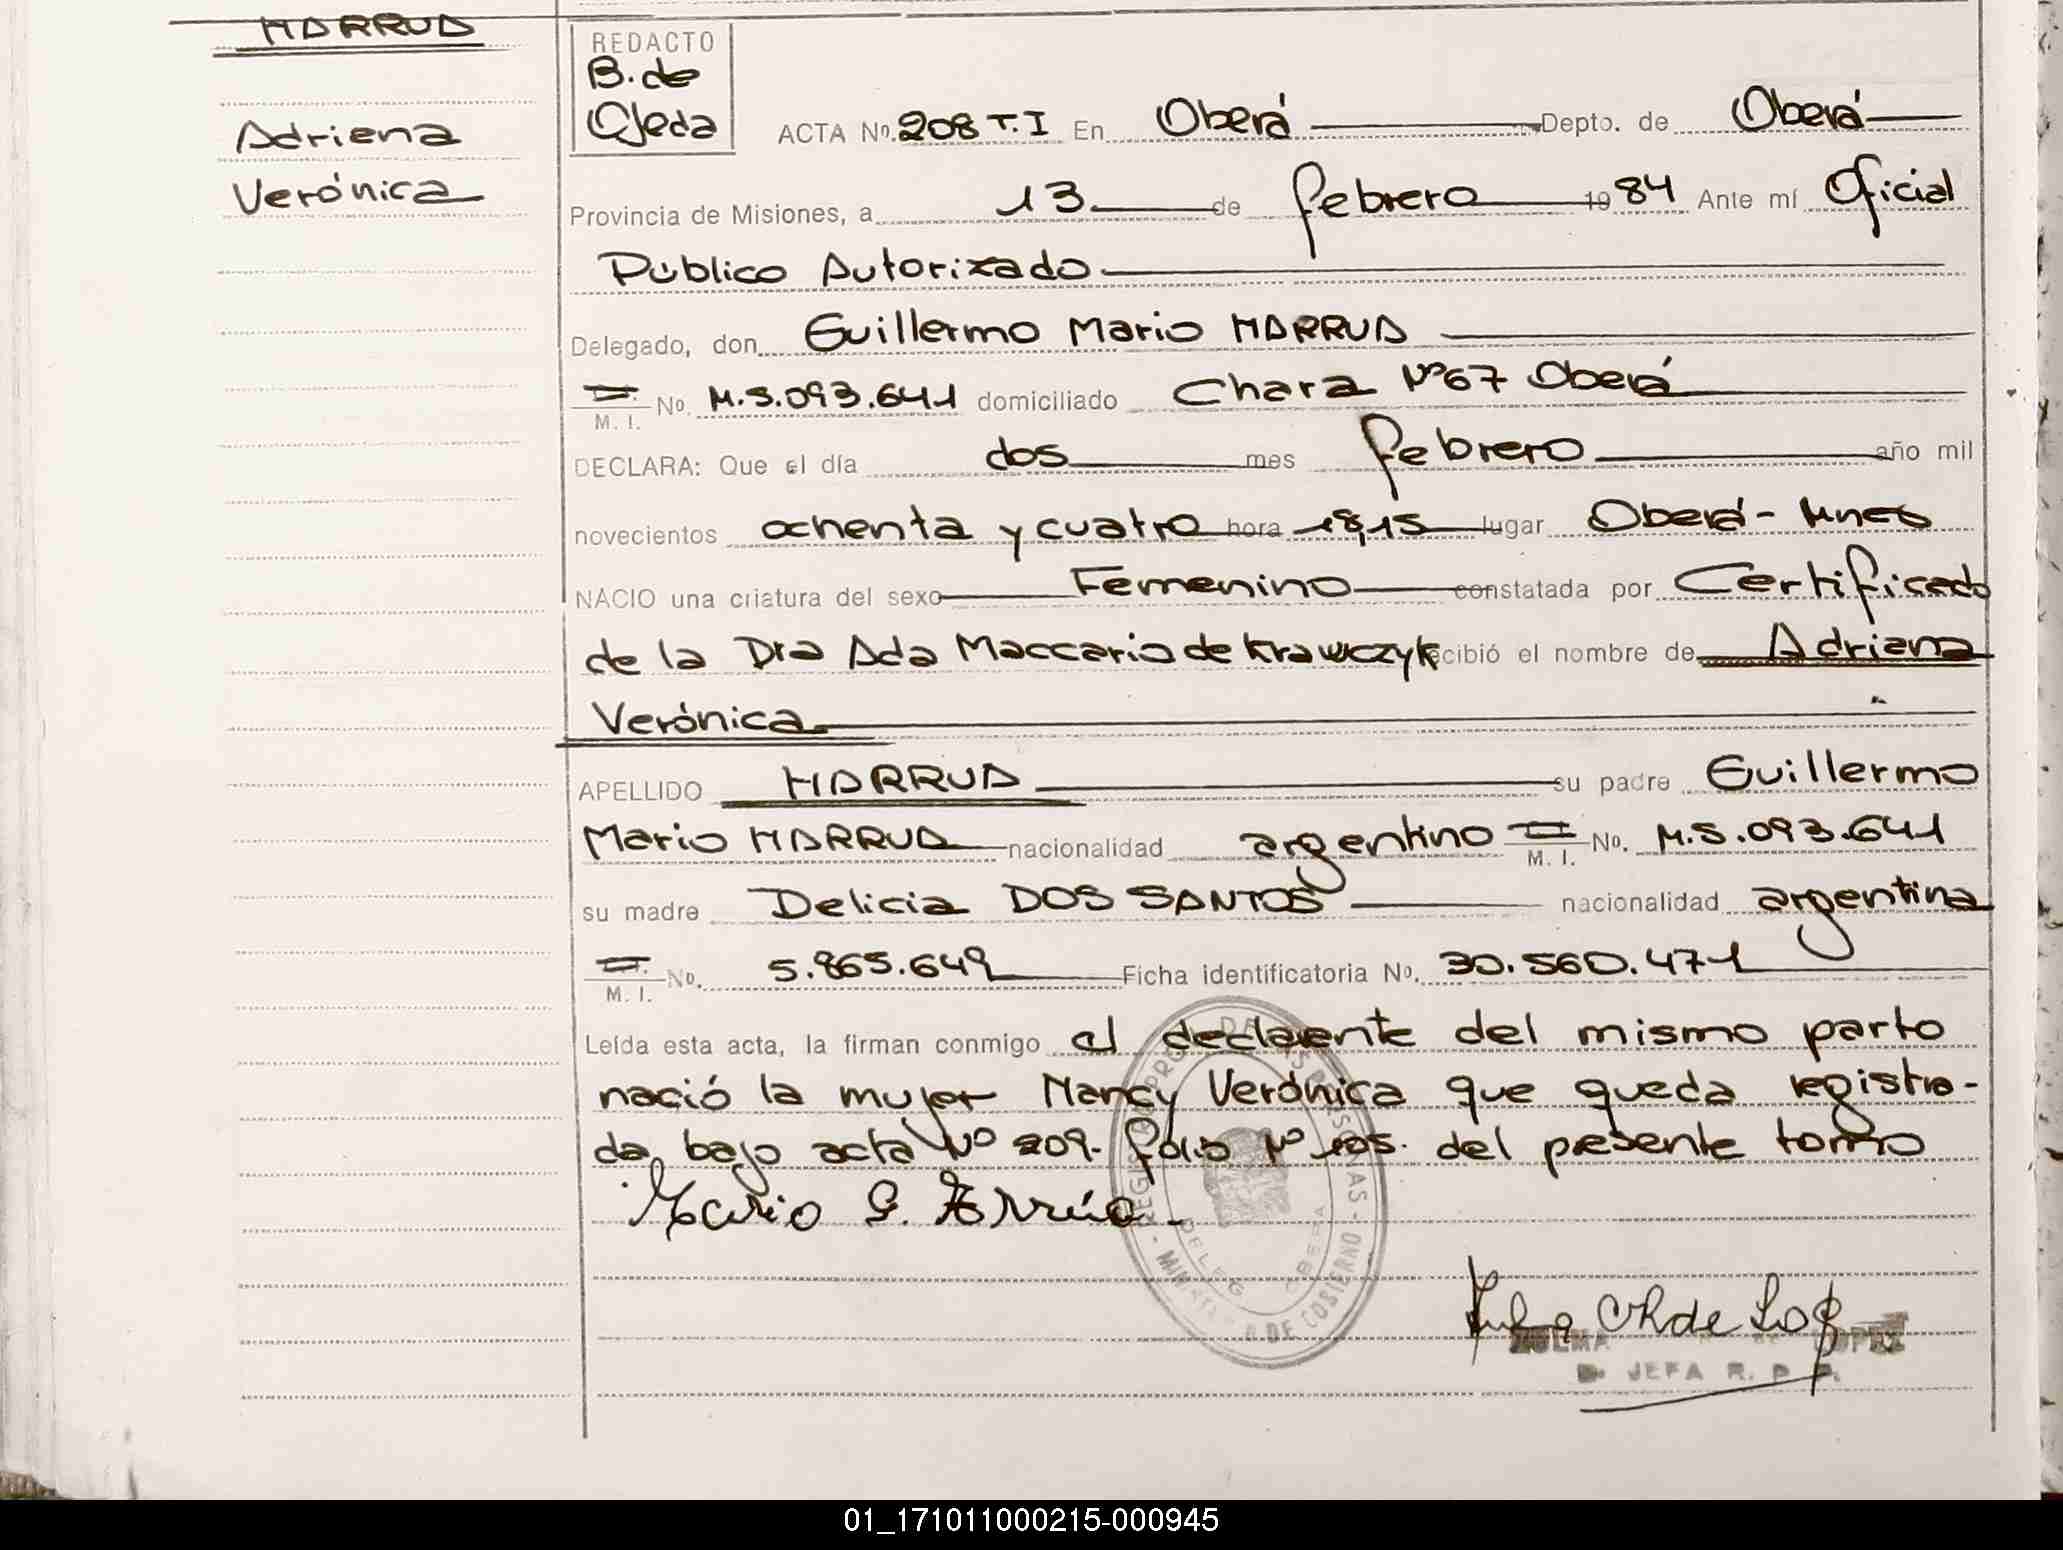 HARRUA
Adriana
Verónica
REDACTO
B. de
Ojeda
ACTA No. 208 T.I En Oberá Depto. de Oberá
Provincia de Misiones, a 13 de febrero 1984 Ante mí Oficial
Público Autorizado
Delegado, don Guillermo Mario HARRUA
M. I. No. M.5.093.641 domiciliado Chara Nº67 Oberá
DECLARA: Que el día dos mes febrero año mil
novecientos ochenta y cuatro hora 18,15 lugar Oberá-
NACIO una criatura del sexo Femenino constatada por Certificado
de la Dra Ada Maccario de Krawczyk recibió el nombre de Adriana
Verónica
APELLIDO HARRUA su padre Guillermo
Mario HARRUA nacionalidad argentino M. I. No. M.5.093.641
su madre Delicia DOS SANTOS nacionalidad argentina
M. I. No. 5.865.649 Ficha identificatoria No. 30.560.471
Leída esta acta, la firman conmigo el declarente del mismo parto
nació la mujer Nancy Verónica que queda registra-
da bajo acta Nº 209. folio Nº 105. del presente tomo
Mario G. Arrúa
ZULMA DE LOPEZ
JEFA R. P. P.
01_171011000215-000945